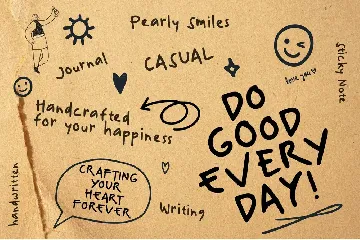 Pearly Smiles
Journal
CASUAL
Sticky Note
love you
Handcrafted
for your happiness
DO
GOOD
EVERY
DAY!
CRAFTING
YOUR
HEART
FOREVER
Writing
handwritten